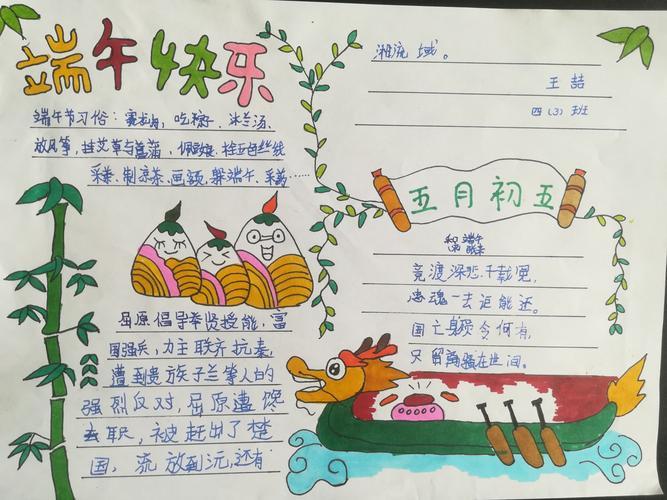 端午快乐
端午节习俗：赛龙舟、吃粽子、沐兰汤、
放风筝、挂艾草与菖蒲、佩香囊、拴五色丝线
采茶、制凉茶、画额、躲端午、采药……
屈原倡导举贤授能，富
国强兵，力主联齐抗秦，
遭到贵族子兰等人的
强烈反对，屈原遭馋
去职，被赶出了楚
国，流放到沅，还有
湘流域。
王喆
四（3）班
五月初五
和端午
竞渡深悲千载冤，
忠魂一去讵能还。
国亡身殒今何有，
只留离骚在世间。